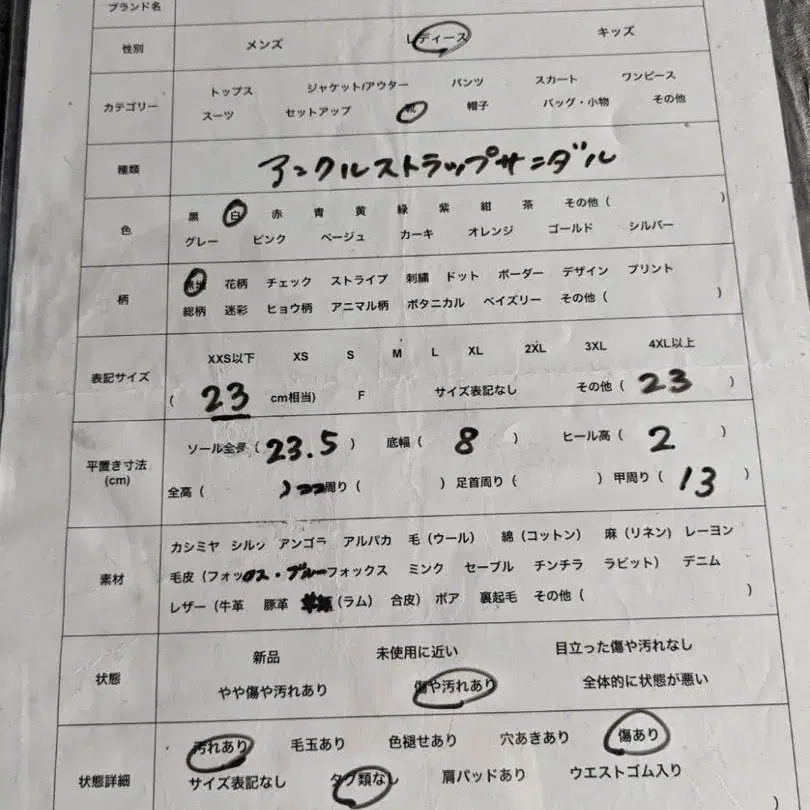 ブランド名
性別 メンズ レディース キッズ
カテゴリー トップス ジャケット/アウター パンツ スカート ワンピース
スーツ セットアップ 靴 帽子 バッグ・小物 その他
種類 アンクルストラップサンダル
色 黒 白 赤 青 黄 緑 紫 紺 茶 その他 ( )
グレー ピンク ベージュ カーキ オレンジ ゴールド シルバー
柄 無地 花柄 チェック ストライプ 刺繍 ドット ボーダー デザイン プリント
総柄 迷彩 ヒョウ柄 アニマル柄 ボタニカル ペイズリー その他 ( )
表記サイズ XXS以下 XS S M L XL 2XL 3XL 4XL以上
( 23 cm相当) F サイズ表記なし その他 ( 23 )
平置き寸法 (cm) ソール全長 ( 23.5 ) 底幅 ( 8 ) ヒール高 ( 2 )
全高 ( ) 周り ( ) 足首周り ( ) 甲周り ( 13 )
素材 カシミヤ シルク アンゴラ アルパカ 毛 (ウール) 綿 (コットン) 麻 (リネン) レーヨン
毛皮 (フォックス・ブルーフォックス ミンク セーブル チンチラ ラビット) デニム
レザー (牛革 豚革 (ラム) 合皮) ボア 裏起毛 その他 ( )
状態 新品 未使用に近い 目立った傷や汚れなし
やや傷や汚れあり 傷や汚れあり 全体的に状態が悪い
状態詳細 汚れあり 毛玉あり 色褪せあり 穴あきあり 傷あり
サイズ表記なし タグ類なし 肩パッドあり ウエストゴム入り
)